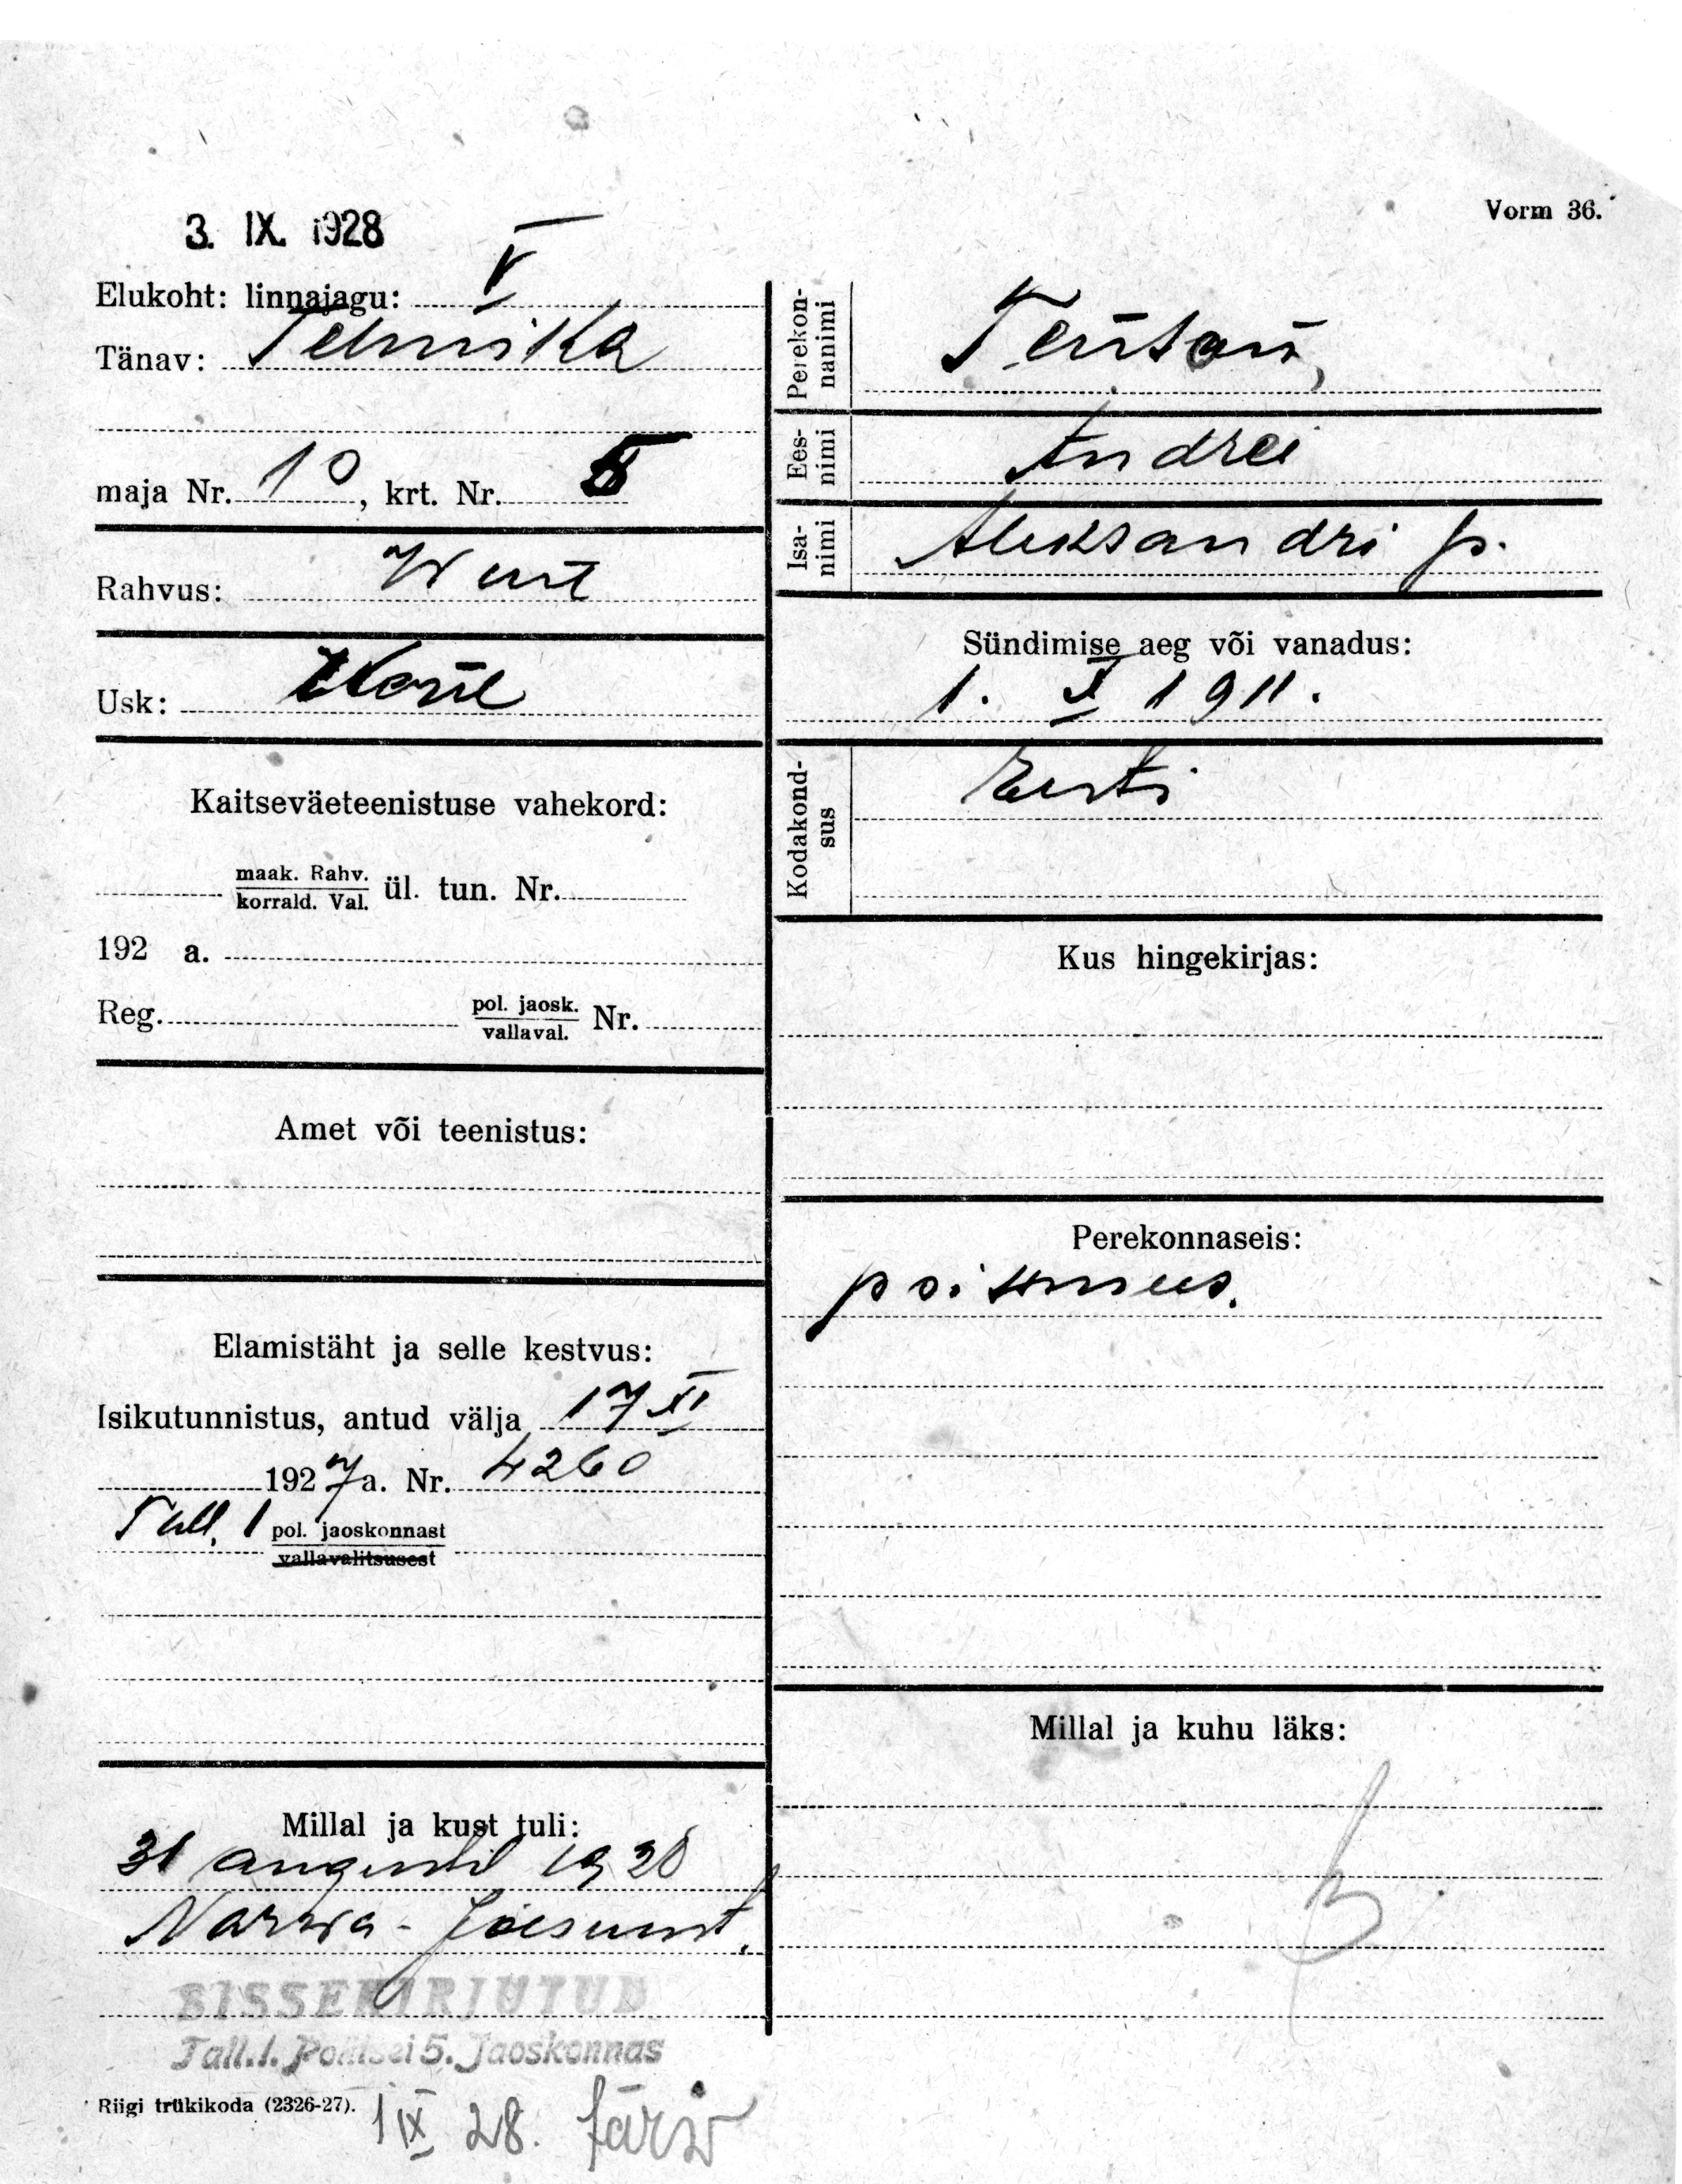 3. IX. 1928
Vorm 36.
Elukoht: linnajagu: V
Tänav: Tehnika
maja Nr. 10, krt. Nr. 5
Rahvus: Wene
Usk:
Kaitseväeteenistuse vahekord:
maak. Rahv.
korrald. Val. ül. tun. Nr.
192 a.
Reg. pol. jaosk.
vallaval. Nr.
Amet või teenistus:
Elamistäht ja selle kestvus:
Isikutunnistus, antud välja 17 XI
1927 a. Nr. 4260
Tall. 1 pol. jaoskonnast
vallavalitsusest
Millal ja kust tuli:
31 augustil 1928
Narva-Jõesuust.
SISSEKIRJUTUD
Tall. l. Politsei 5. Jaoskonnas
Riigi trükikoda (2326-27).
1 IX 28. Järv
Perekon-
nanimi
Ees-
nimi Andrei
Isa-
nimi Aleksandri p.
Sündimise aeg või vanadus:
1. X 1911.
Kodakond-
sus Eesti
Kus hingekirjas:
Perekonnaseis:
poissmees.
Millal ja kuhu läks: